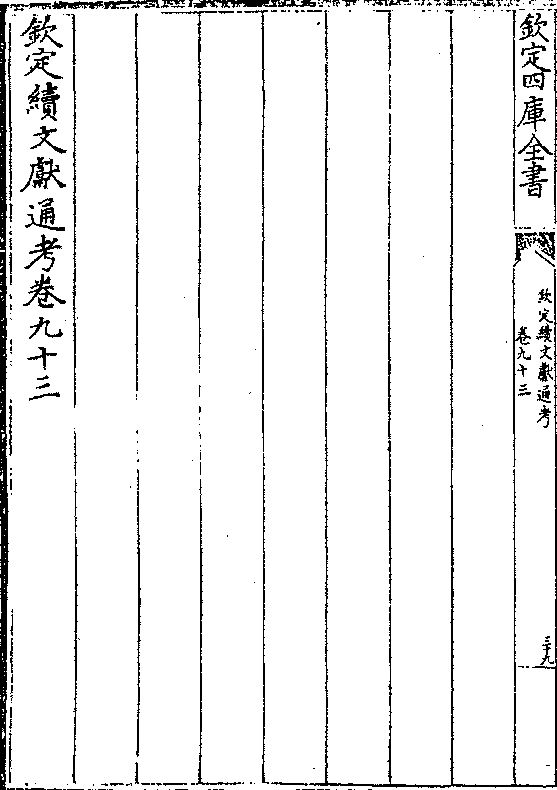 欽定四庫全書
欽定續文獻通考
卷九十三
三十九
欽定續文獻通考卷九十三